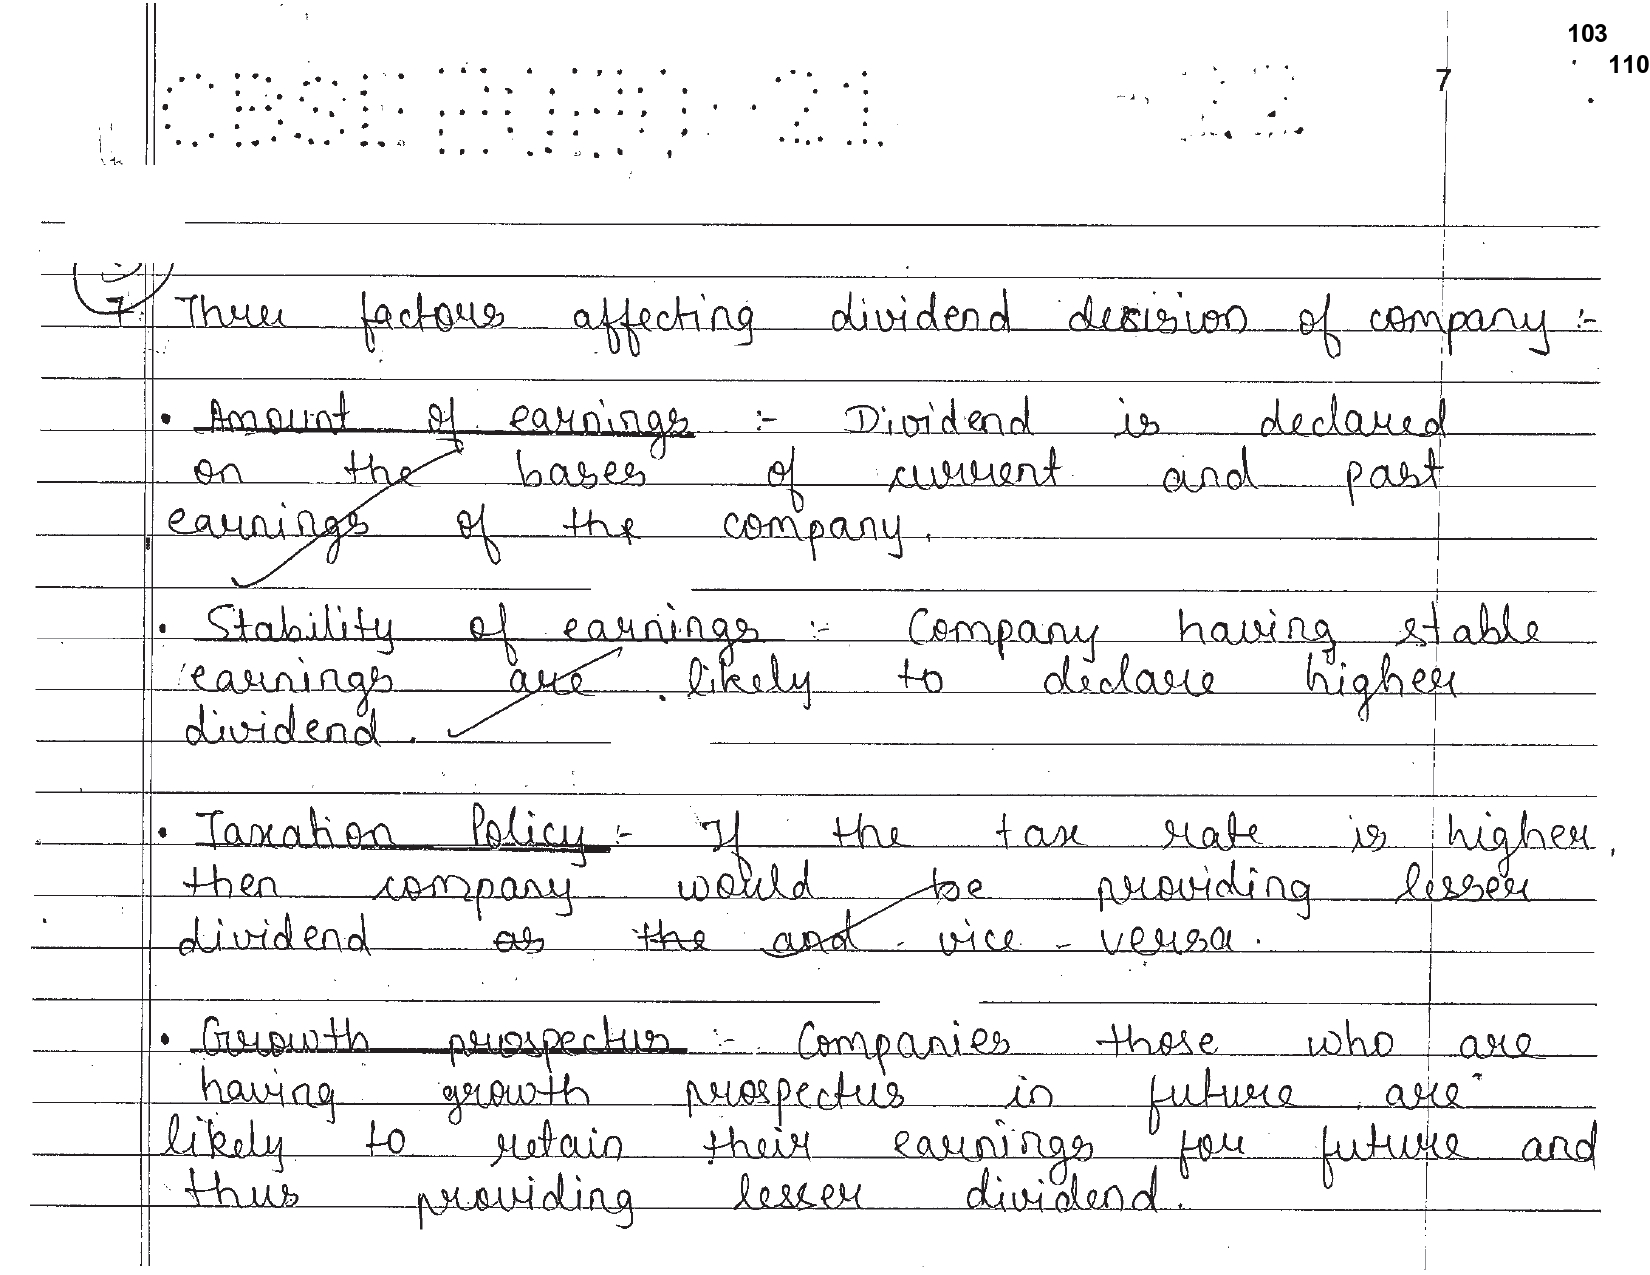 103
110
7
7. Three factors affecting dividend decision of company :-
• Amount of earnings :- Dividend is declared
on the bases of current and past
earnings of the company.
• Stability of earnings :- Company having stable
earnings are likely to declare higher
dividend.
• Taxation Policy :- If the tax rate is higher,
then company would be providing lesser
dividend as the and vice-versa.
• Growth prospectus :- Companies those who are
having growth prospectus in future are
likely to retain their earnings for future and
thus providing lesser dividend.